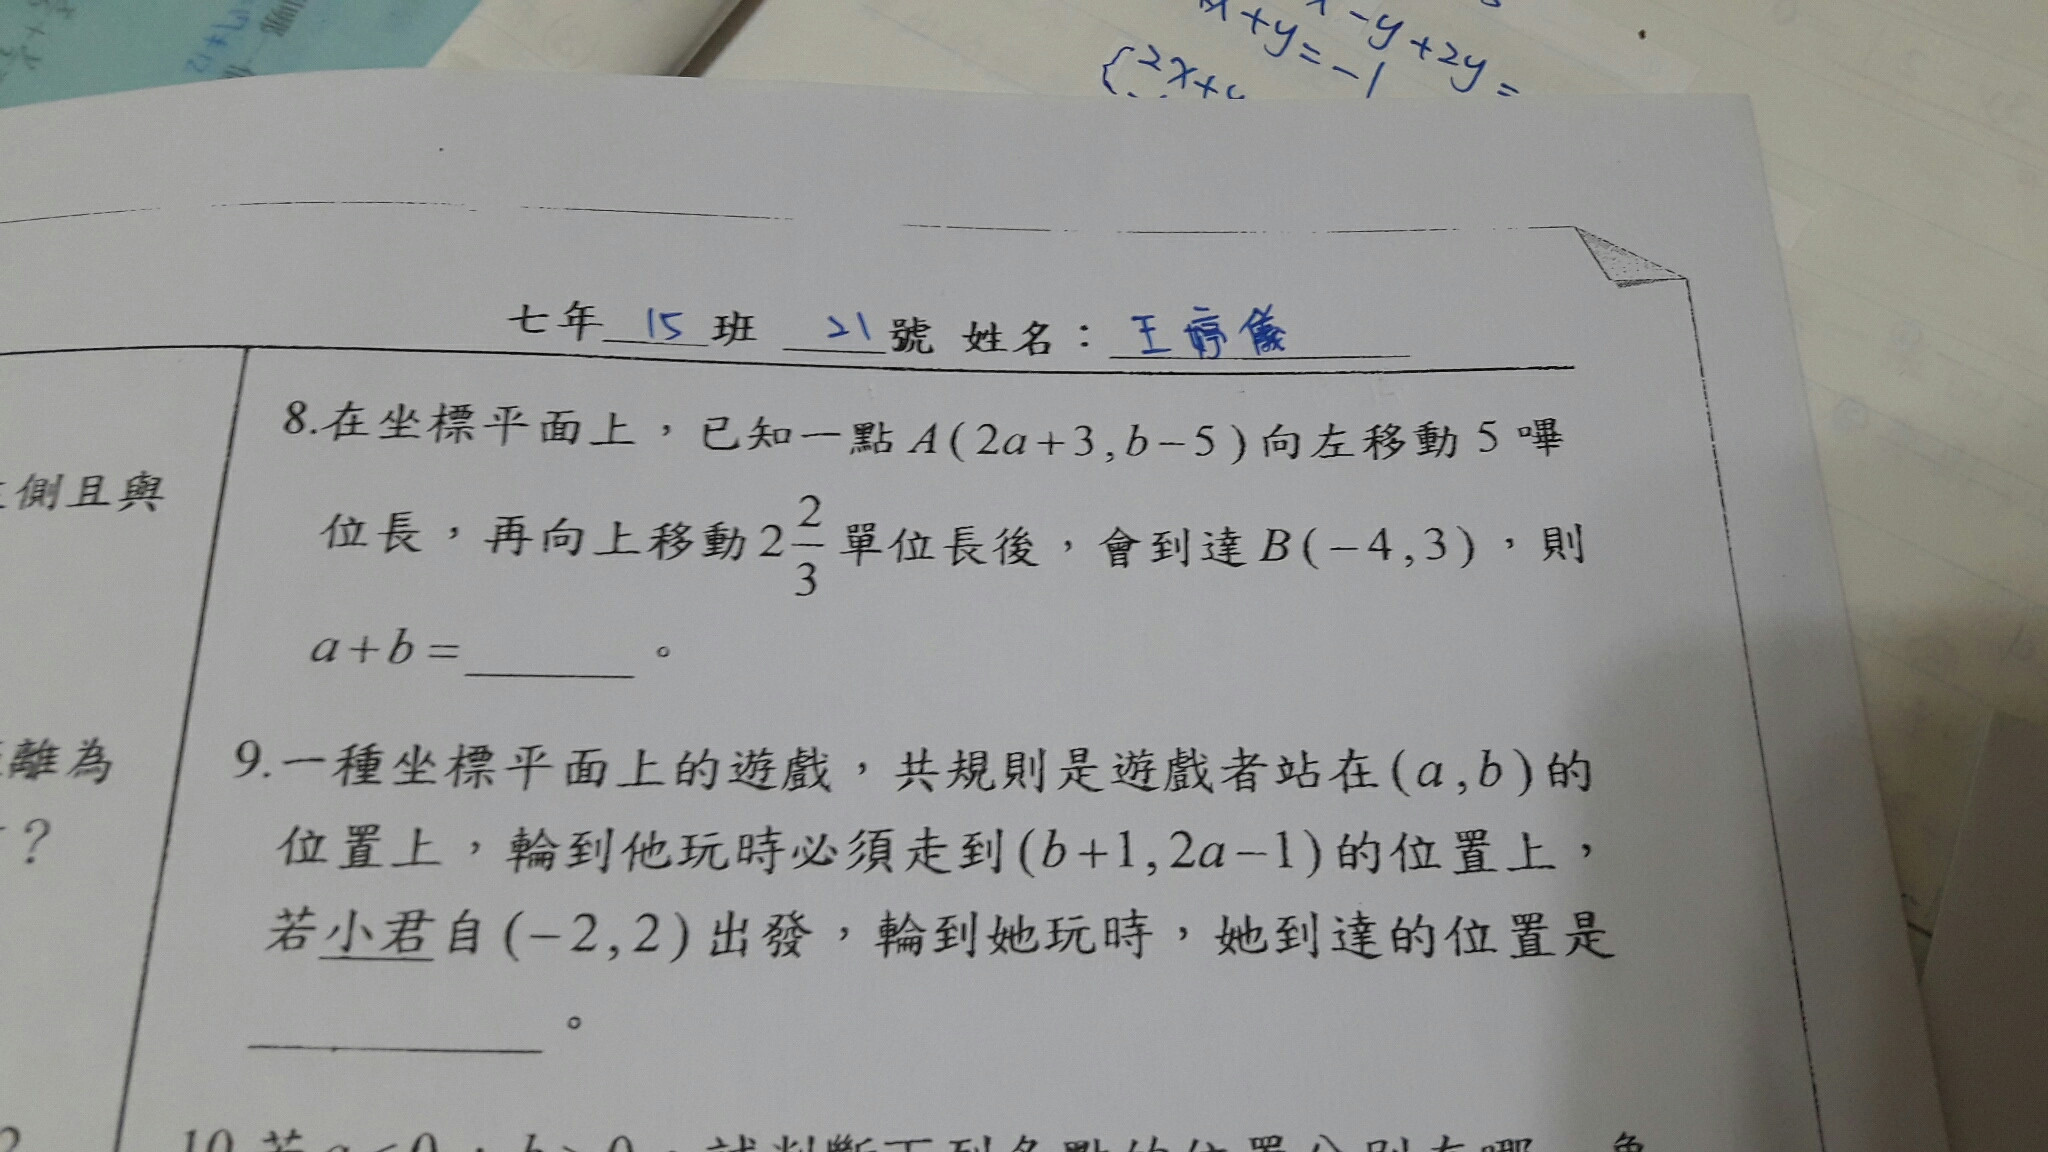 x-y+2y=
x+y=-1
{2x+y
七年 15 班 21 號 姓名：王婷儀
側且與
離為
?
8.在坐標平面上，已知一點A(2a+3,b-5)向左移動5嗶
位長，再向上移動2 2/3 單位長後，會到達B(-4,3)，則
a+b=______。
9.一種坐標平面上的遊戲，共規則是遊戲者站在(a,b)的
位置上，輪到他玩時必須走到(b+1,2a-1)的位置上，
若小君自(-2,2)出發，輪到她玩時，她到達的位置是
______。
10.若a<0，b>0，試判斷下列各點的位置分別在哪一象